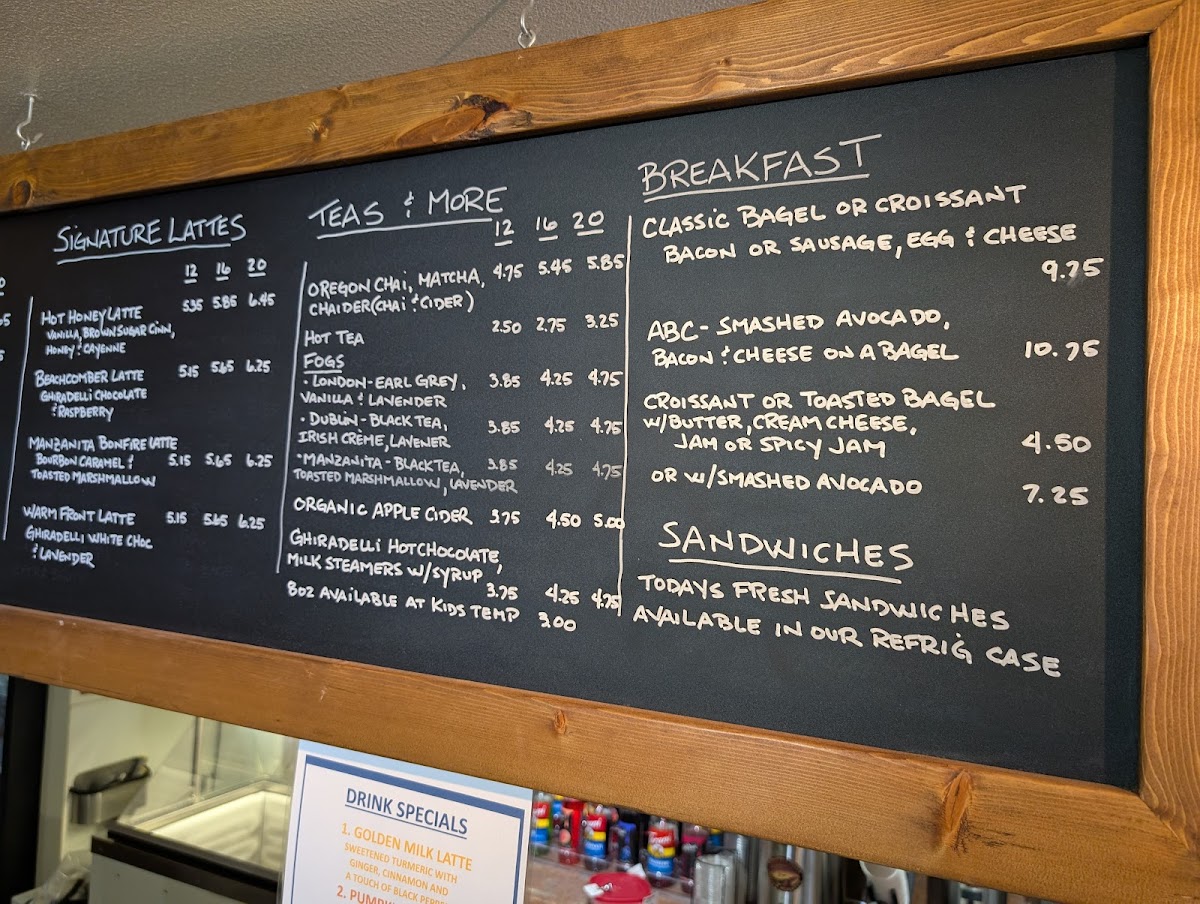 SIGNATURE LATTES
12 16 20
HOT HONEY LATTE 5.35 5.85 6.45
VANILLA, BROWN SUGAR CINN,
HONEY & CAYENNE
BEACHCOMBER LATTE 5.15 5.65 6.25
GHIRADELLI CHOCOLATE
& RASPBERRY
MANZANITA BONFIRE LATTE
BOURBON CARAMEL & 5.15 5.65 6.25
TOASTED MARSHMALLOW
WARM FRONT LATTE 5.15 5.65 6.25
GHIRADELLI WHITE CHOC
& LAVENDER
TEAS & MORE
12 16 20
OREGON CHAI, MATCHA, 4.75 5.45 5.85
CHAIDER (CHAI & CIDER)
HOT TEA 2.50 2.75 3.25
FOGS
• LONDON - EARL GREY, 3.85 4.25 4.75
VANILLA & LAVENDER
• DUBLIN - BLACK TEA, 3.85 4.25 4.75
IRISH CRÈME, LAVENER
• MANZANITA - BLACK TEA, 3.85 4.25 4.75
TOASTED MARSHMALLOW, LAVENDER
ORGANIC APPLE CIDER 3.75 4.50 5.00
GHIRADELLI HOT CHOCOLATE,
MILK STEAMERS W/SYRUP 3.75 4.25 4.75
8OZ AVAILABLE AT KIDS TEMP 3.00
BREAKFAST
CLASSIC BAGEL OR CROISSANT
BACON OR SAUSAGE, EGG & CHEESE
9.75
ABC - SMASHED AVOCADO,
BACON & CHEESE ON A BAGEL 10.75
CROISSANT OR TOASTED BAGEL
W/BUTTER, CREAM CHEESE,
JAM OR SPICY JAM 4.50
OR W/SMASHED AVOCADO 7.25
SANDWICHES
TODAYS FRESH SANDWICHES
AVAILABLE IN OUR REFRIG CASE
DRINK SPECIALS
1. GOLDEN MILK LATTE
SWEETENED TURMERIC WITH
GINGER, CINNAMON AND
A TOUCH OF BLACK
2.